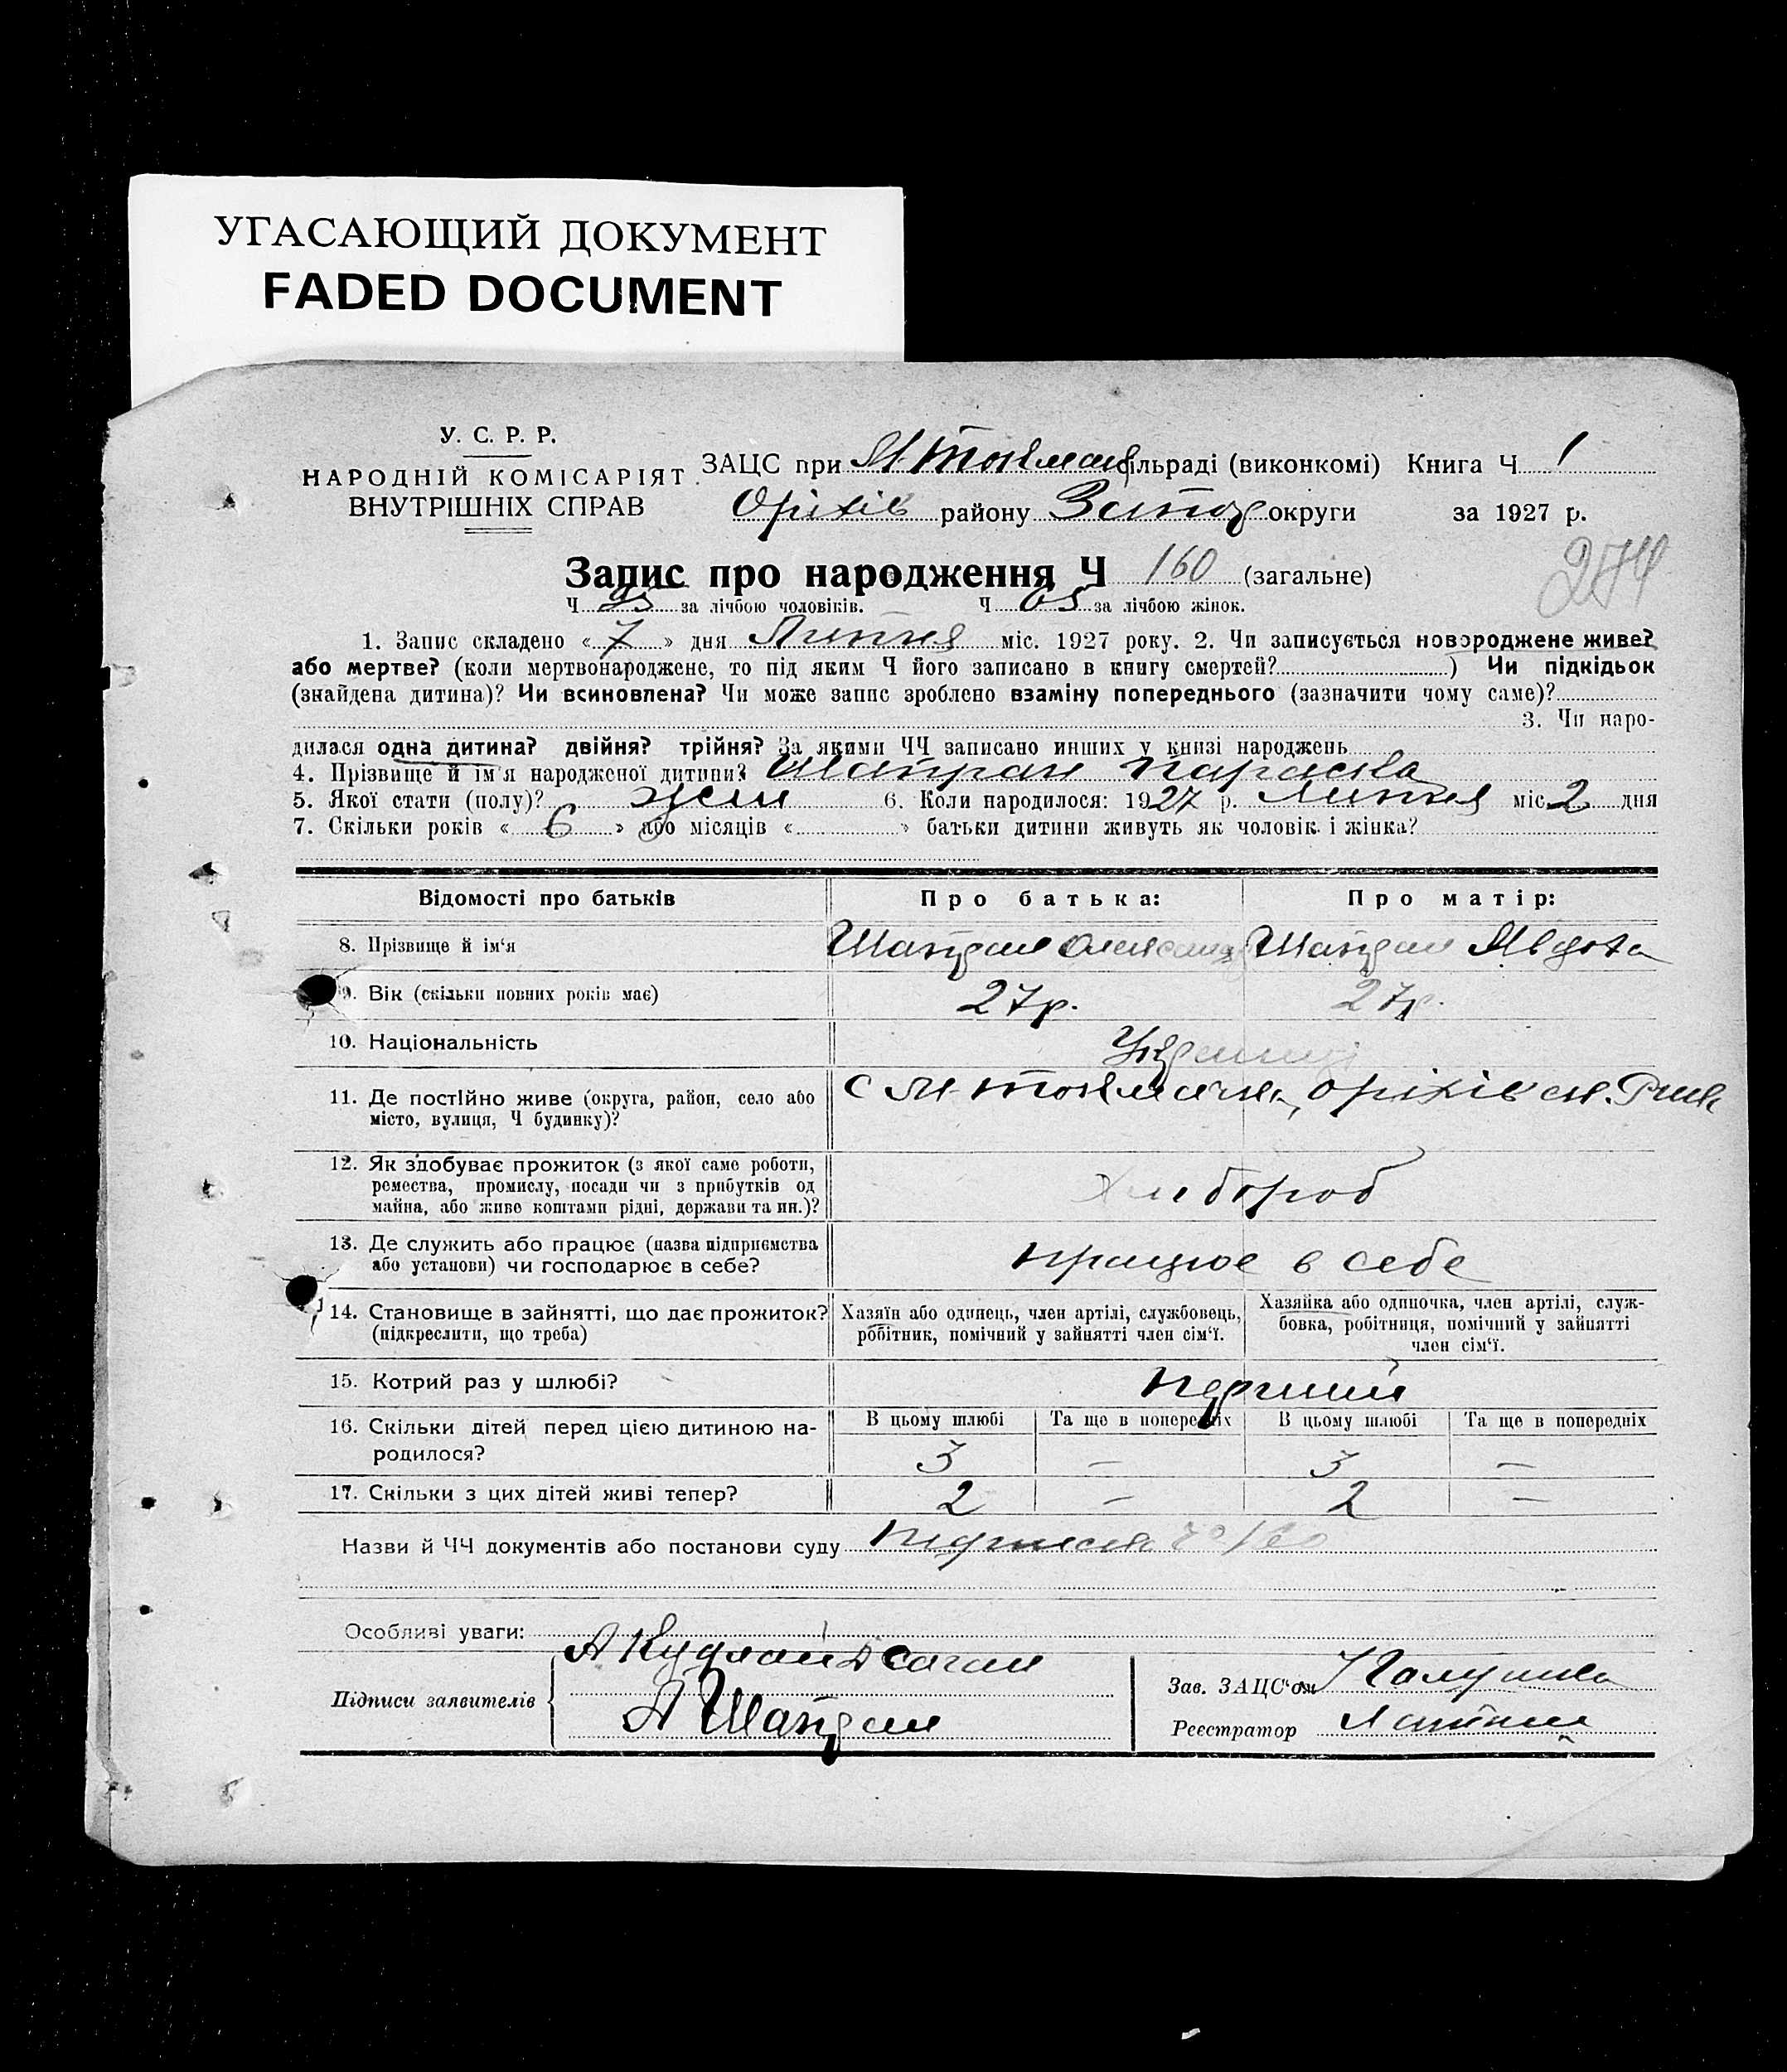 УГАСАЮЩИЙ ДОКУМЕНТ
FADED DOCUMENT
У. С. Р. Р.
НАРОДНІЙ КОМІСАРІЯТ
ВНУТРІШНІХ СПРАВ
ЗАЦС при М-Токмач сільраді (виконкомі) Книга Ч 1
Оріхів району Запоз округи за 1927 р.
Запис про народження Ч 160 (загальне)
274
Ч 95 за лічбою чоловіків. Ч 65 за лічбою жінок.
1. Запис складено « 7 » дня Липня міс. 1927 року. 2. Чи записується новороджене живе?
або мертве? (коли мертвонароджене, то під яким Ч його записано в книгу смертей? ) Чи підкідьок
(знайдена дитина)? Чи всиновлена? Чи може запис зроблено взаміну попереднього (зазначити чому саме)?
3. Чи наро-
дилася одна дитина? двійня? трійня? За якими ЧЧ записано инших у книзі народжень
4. Прізвище й ім'я народженої дитини? Шапран Параска
5. Якої стати (полу)? жін 6. Коли народилося: 1927 р. Липня міс. 2 дня
7. Скільки років « 6 » або місяців « » батьки дитини живуть як чоловік і жінка?
Відомості про батьків Про батька: Про матір:
8. Прізвище й ім'я Шапран Олександ Шапран Явдоха
9. Вік (скільки повних років має) 27р. 27р.
10. Національність Українці
11. Де постійно живе (округа, район, село або
місто, вулиця, Ч будинку)?
с М-Токмачка, Оріхівськ.
12. Як здобуває прожиток (з якої саме роботи,
ремества, промислу, посади чи з прибутків од
майна, або живе коштами рідні, держави та ин.)?
Хлібороб
13. Де служить або працює (назва підприємства
або установи) чи господарює в себе?
працює в себе
14. Становище в зайнятті, що дає прожиток?
(підкреслити, що треба)
Хазяїн або одинець, член артілі, службовець,
робітник, помічний у зайнятті член сім'ї.
Хазяйка або одиночка, член артілі, служ-
бовка, робітниця, помічний у зайнятті
член сім'ї.
15. Котрий раз у шлюбі? перший
16. Скільки дітей перед цією дитиною на-
родилося?
В цьому шлюбі Та ще в попередніх В цьому шлюбі Та ще в попередніх
3 — 3 —
17. Скільки з цих дітей живі тепер? 2 — 2 —
Назви й ЧЧ документів або постанови суду
Особливі уваги:
Підписи заявителів
А Шапран
Зав. ЗАЦС'ом
Реєстратор